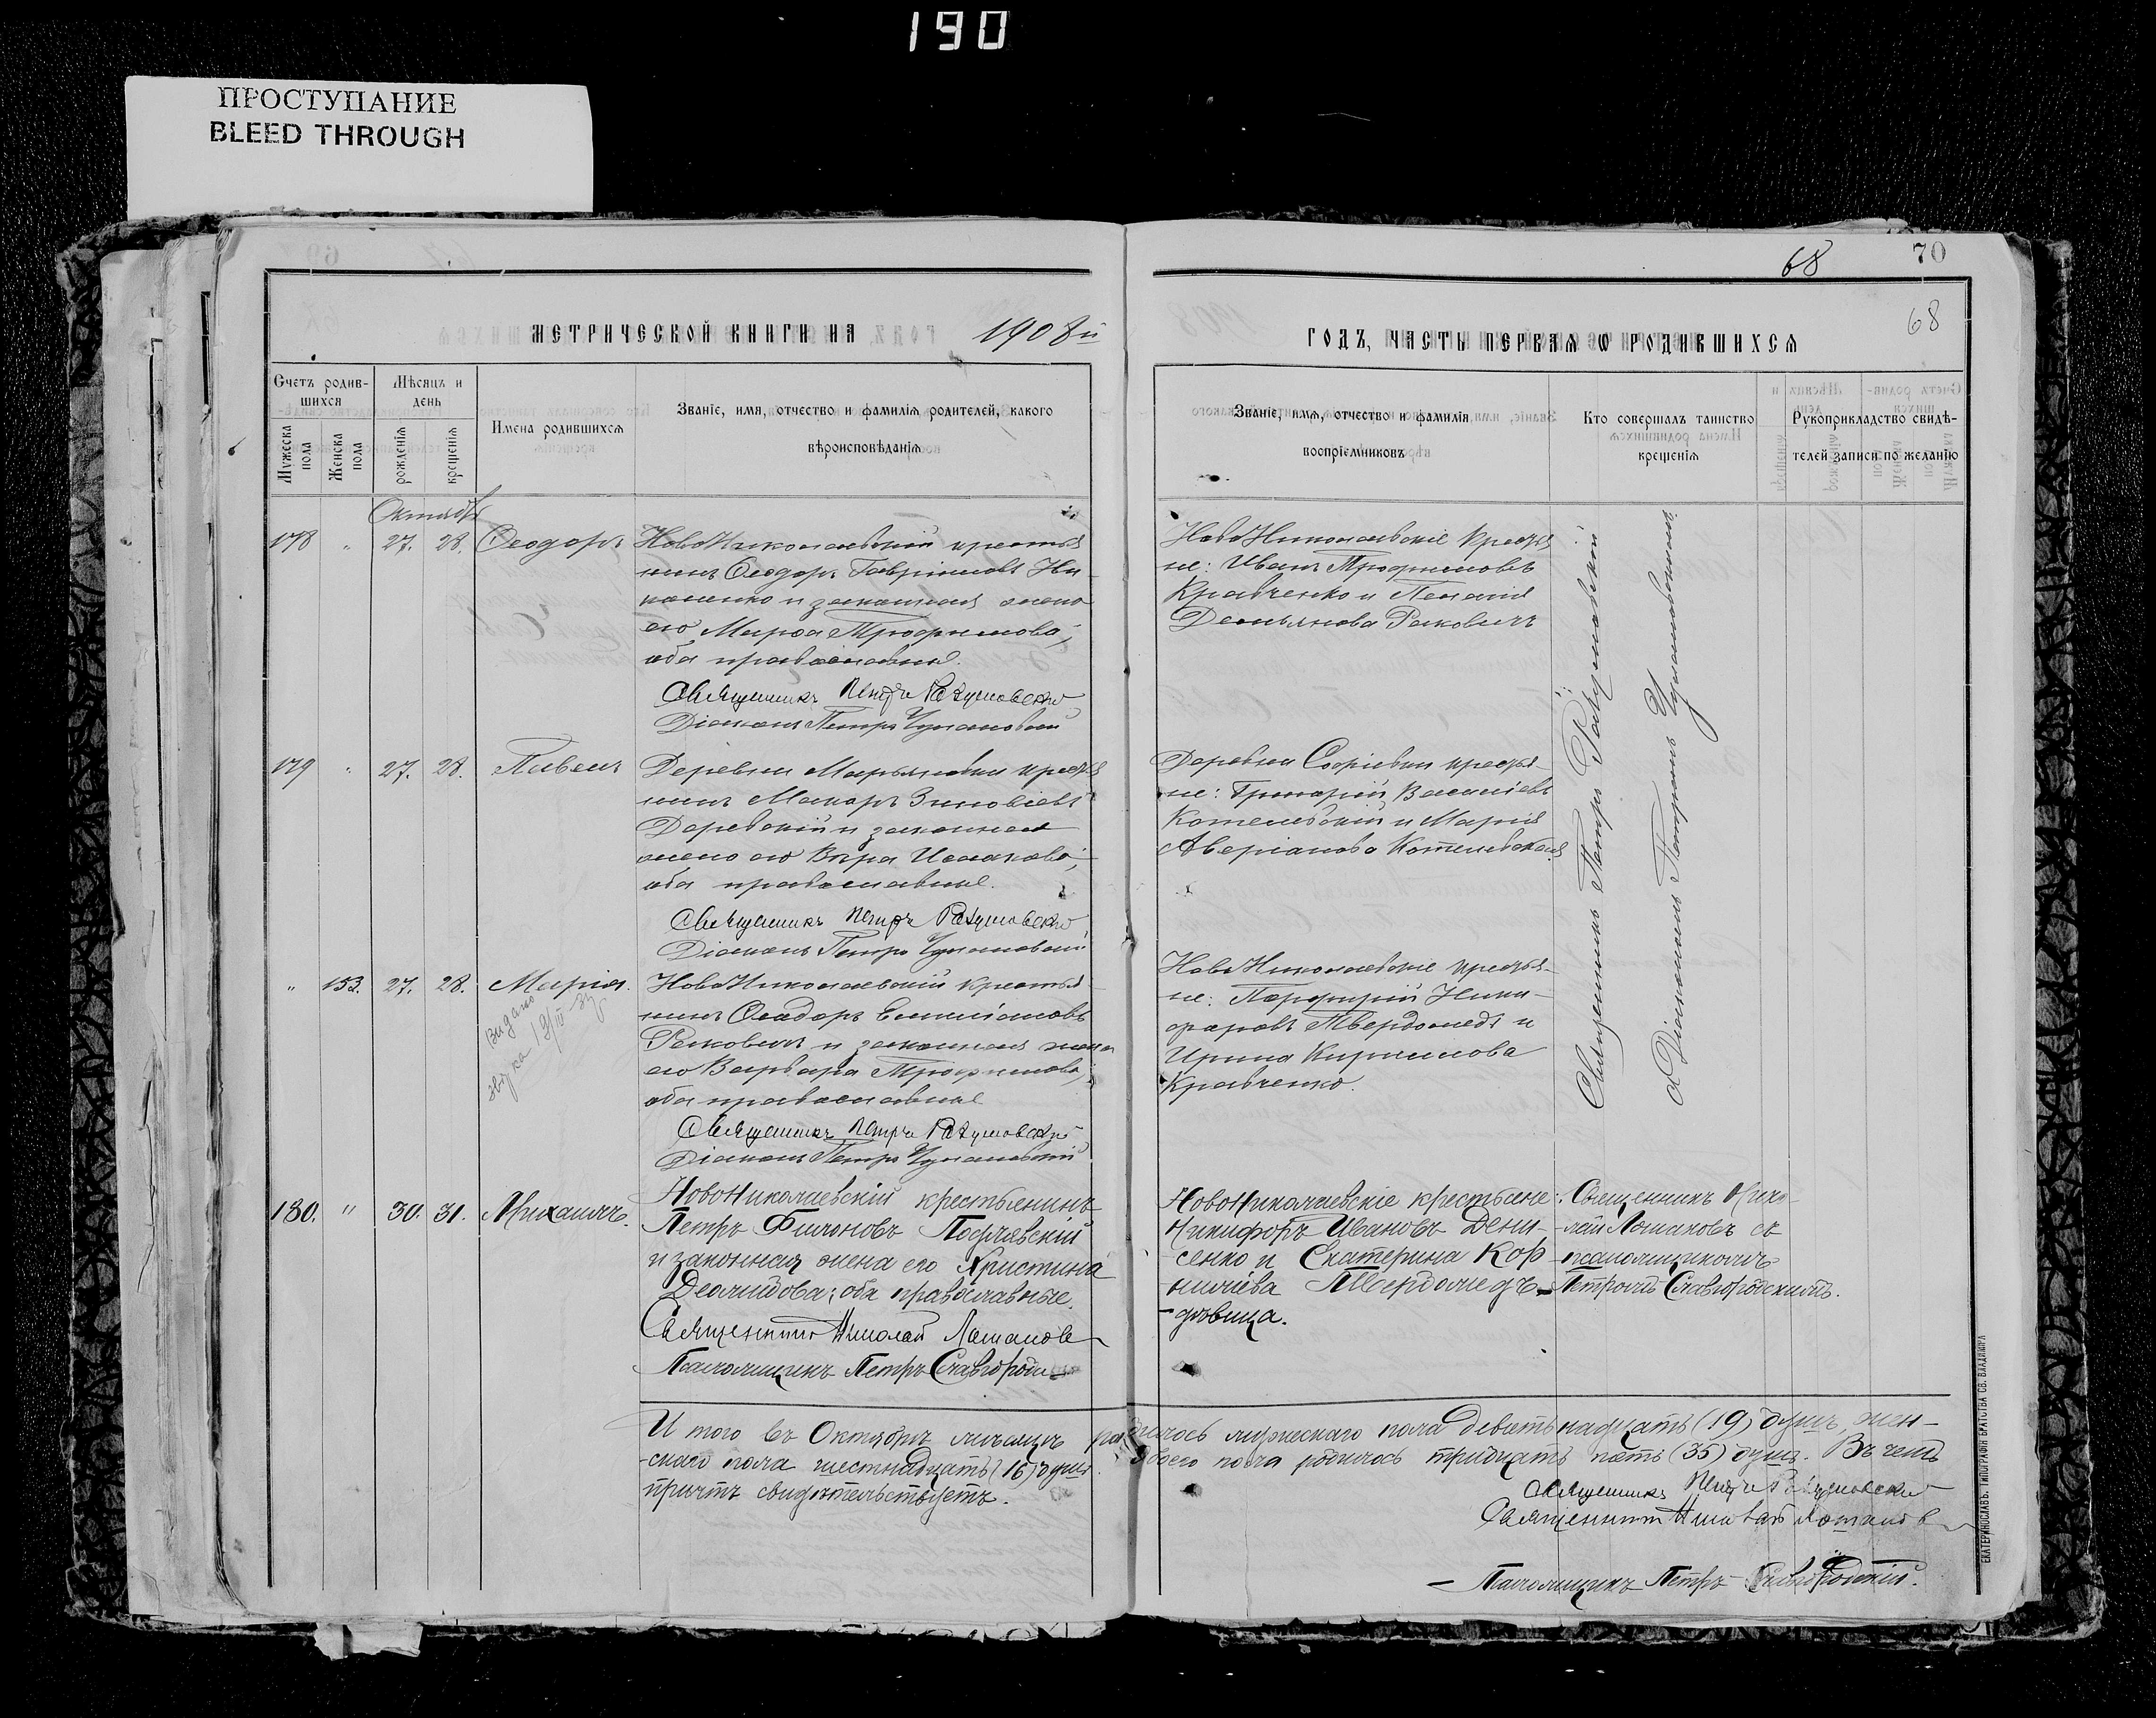 190
ПРОСТУПАНИЕ
BLEED THROUGH
68
70
68
МЕТРИЧЕСКОЙ КНИГИ НА 1908й
ГОДЪ, ЧАСТЬ ПЕРВАЯ Ѡ РОДИВШИХСЯ
Счетъ родив-
шихся
Мѣсяцъ и
день
Мужеска
пола
Женска
пола
рожденія
крещенія
Имена родившихся
Званіе, имя, отчество и фамилія родителей, какого
вѣроисповѣданія
Званіе, имя, отчество и фамилія
воспріемниковъ
Кто совершалъ таинство
крещенія
Рукоприкладство свидѣ-
телей записи по желанію
Октябр
178 " 27. 28. Ѳеодоръ
НовоНиколаевскій крестья
нинъ Ѳеодоръ Гавріиловъ Ни-
коненко и законная жена
его Марѳа Трофимова,
оба православные.
Священникъ Петръ Разумовскій
Діаконъ Петръ
НовоНиколаевскіе крестья
не: Иванъ Трофимовъ
Кравченко и Пелагія
Демьянова Раковичъ
179 " 27. 28. Павелъ
Деревни Марьяновки крестья
нинъ Макаръ Зиновіевъ
Даревскій и законная
жена его Вѣра Исаакова,
оба православные.
Священникъ Петръ Разумовскій
Діаконъ Петръ
Деревни Софіевки крестья-
не: Григорій Василіевъ
Котелевскій и Марія
Аверіанова Котелевская
" 153. 27. 28. Марія.
Видано
НовоНиколаевскій крестья
нинъ Ѳеодоръ Емиліановъ
Раковичъ и законная жена
его Варвара Трофимова,
оба православные
Священникъ Петръ Разумовскій
Діаконъ Петръ
НовоНиколаевскіе крестья-
не: Порфирій Ники-
форовъ Твердомедъ и
Ирина Кириллова
Кравченко.
Священникъ Петръ Разумовскій
съ Діакономъ Петромъ
180. " 30. 31. Михаилъ.
НовоНиколаевскій крестьянинъ
Петръ Филоновъ Подлявскій
и законная жена его Христина
Деомидова; оба православные.
Священникъ Николай Лошаковъ
Псаломщикъ Петръ Славгород
НовоНиколаевскіе крестьяне:
Никифоръ Ивановъ Дени-
сенко и Екатерина Кор-
ниліева Твердомедъ
дѣвица.
Священникъ Нико-
лай Лошаковъ съ
псаломщикомъ
Петромъ Славгородскимъ.
И того въ Октябрѣ мѣсяцѣ родилось мужескаго пола девятьнадцать (19) душъ, жен-
-скаго пола шестнадцать (16) душъ. Всего пола родилось тридцать пять (35) душъ. Въ чемъ
причтъ свидѣтельствуетъ.
Священникъ Петръ Разумовскій
Священникъ Николай Лошаковъ
Псаломщикъ Петръ Славгородскій.
ЕКАТЕРИНОСЛАВЪ. ТИПОГРАФІЯ БРАТСТВА СВ. ВЛАДИМІРА